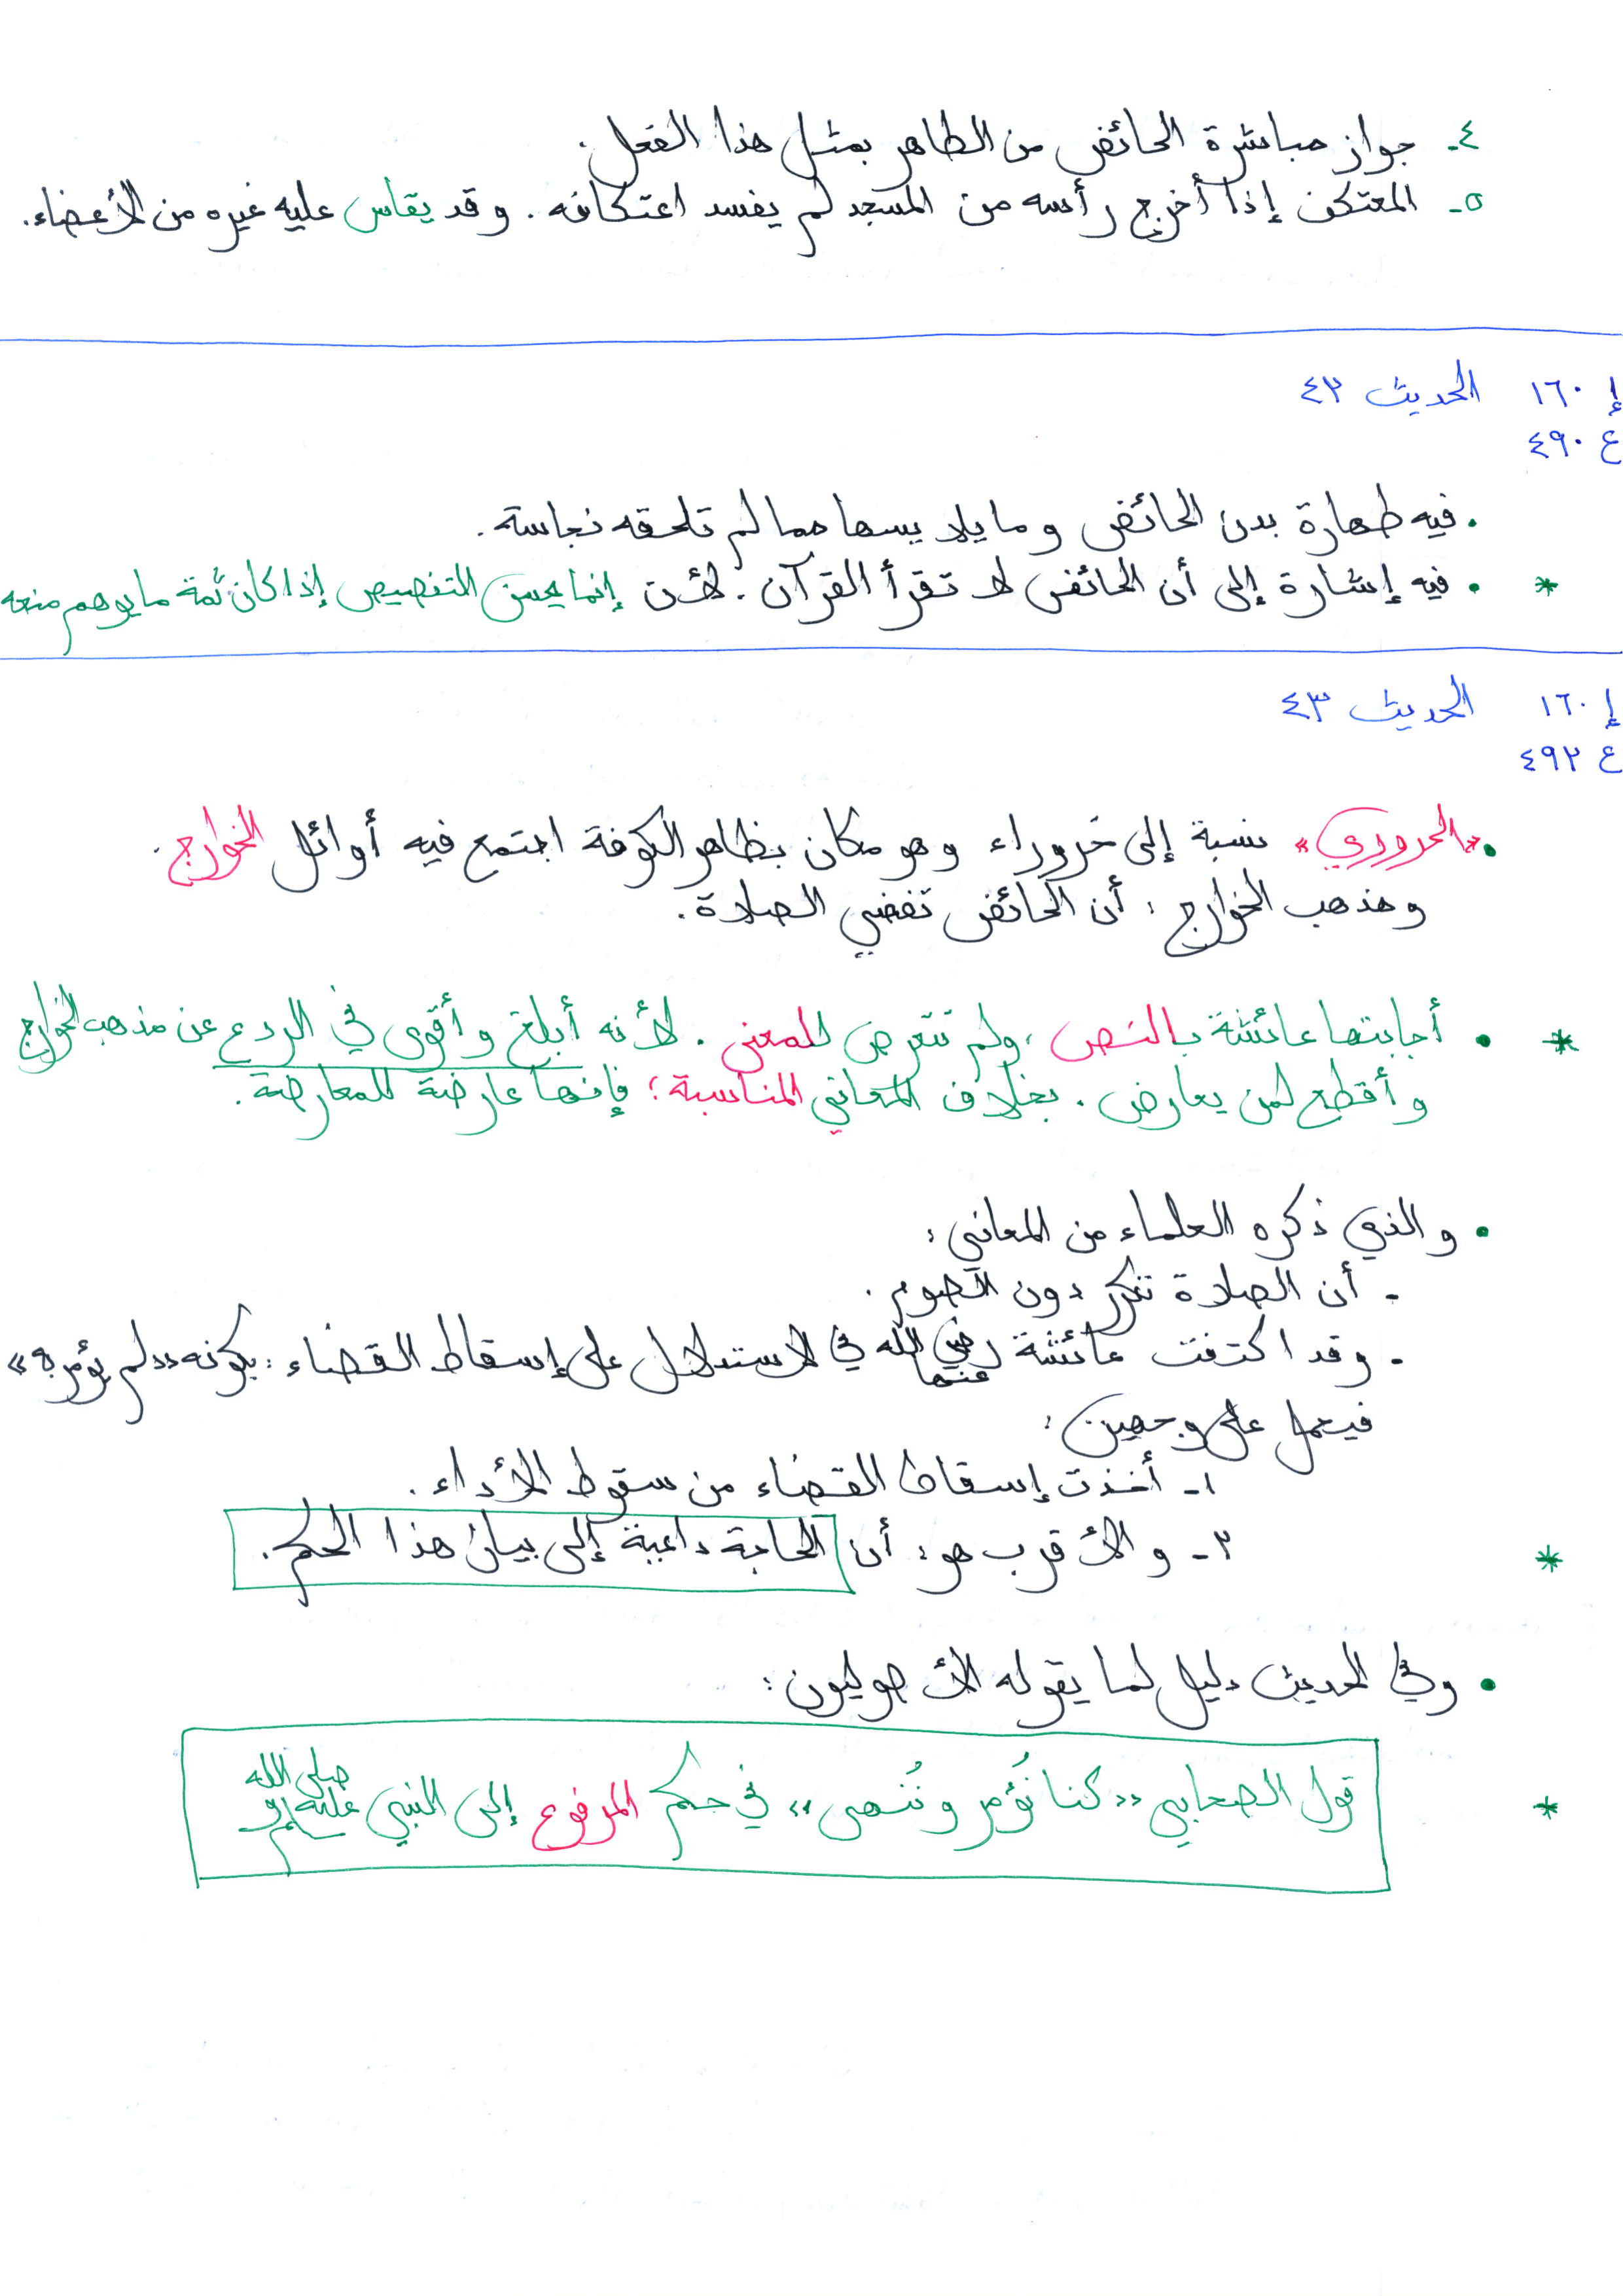 ٤- جواز مباشرة الحائض من الطاهر بمثل هذا الفعل.
٥- المعتكف إذا أخرج رأسه من المسجد لم يفسد اعتكافه. وقد يقاس عليه غيره من الأعضاء.
إ ١٦٠ الحديث ٤٢
ع ٤٩٠
• فيه طهارة بدن الحائض وما يلابسها مما لم تلحقه نجاسة.
* • فيه إشارة إلى أن الحائض لا تقرأ القرآن. لأن إنما يحسن التنصيص إذا كان ثمة ما يوهم منعه
إ ١٦٠ الحديث ٤٣
ع ٤٩٢
• «الحروري» نسبة إلى حَروراء وهو مكان بظاهر الكوفة اجتمع فيه أوائل الخوارج.
ومذهب الخوارج: أن الحائض تقضي الصلاة.
* • أجابتها عائشة بالنص، ولم تتعرض للمعنى. لأنه أبلغ وأقوى في الردع عن مذهب الخوارج
وأقطع لمن يعارض. بخلاف المعاني المناسبة؛ فإنها عارضة للمعارضة.
• والذي ذكره العلماء من المعاني:
- أن الصلاة تتكرر دون الصوم.
- وقد اكتفت عائشة رضي الله عنها في الاستدلال على إسقاط القضاء: بكونه «لم يؤمر به»
فيحمل على وجهين:
١- أخذت إسقاط القضاء من سقوط الأداء.
* ٢- والأقرب هو: أن الحاجة داعية إلى بيان هذا الحكم.
• وفي الحديث دليل لما يقوله الأصوليون:
* قول الصحابي «كنا نُؤمر ونُنهى» في حكم المرفوع إلى النبي صلى الله عليه وسلم